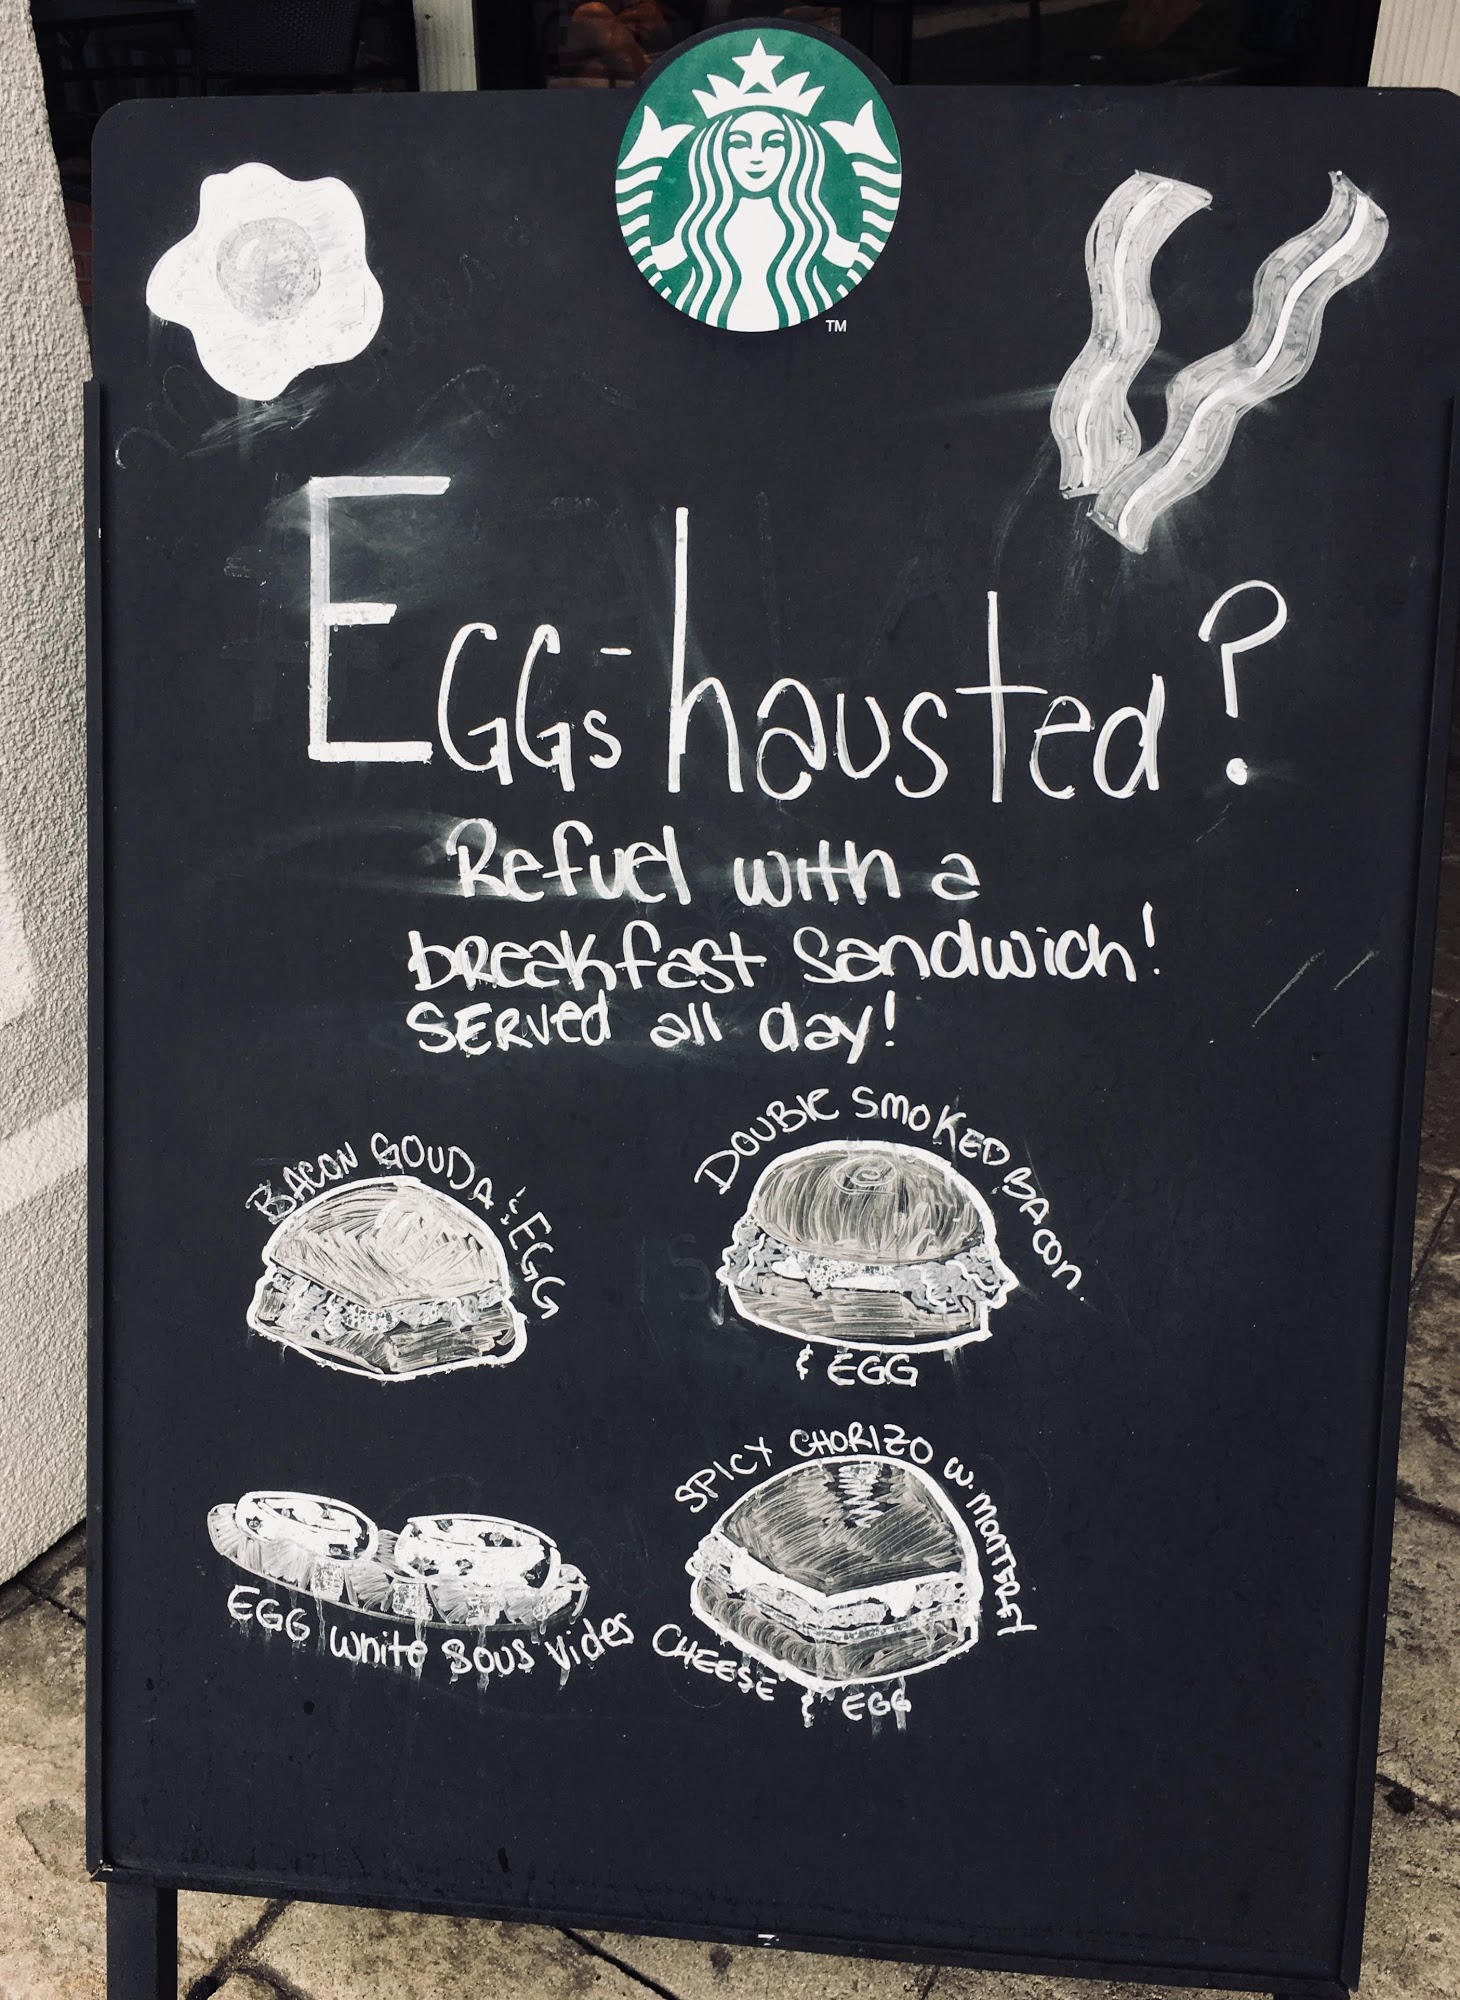 TM
EGGs-hausted?
Refuel with a
breakfast sandwich!
SERVED all day!
BACON GOUDA & EGG
DOUBLE SMOKED BACON
& EGG
EGG White Sous Vides
SPICY CHORIZO W. MONTEREY
CHEESE & EGG